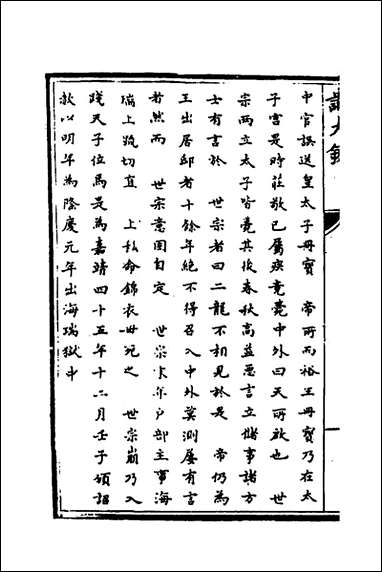 中官誤送皇太子冊寶　帝所而裕王冊寶乃在太
子宮是時莊敬已屬疾竟薨中外曰天所啟也　世
宗兩立太子皆薨其後春秋高益惡言立儲事諸方
士有言於　世宗者曰二龍不相見於是　帝仍為
王出居邸者十餘年絶不得召入中外莫測屢有言
者然而　世宗意固自定　世宗末年戶部主事海
瑞上疏切直　上私命錦衣毋死之　世宗崩乃入
踐天子位焉是為嘉靖四十五年十二月壬子頒詔
赦以明年為隆慶元年出海瑞獄中